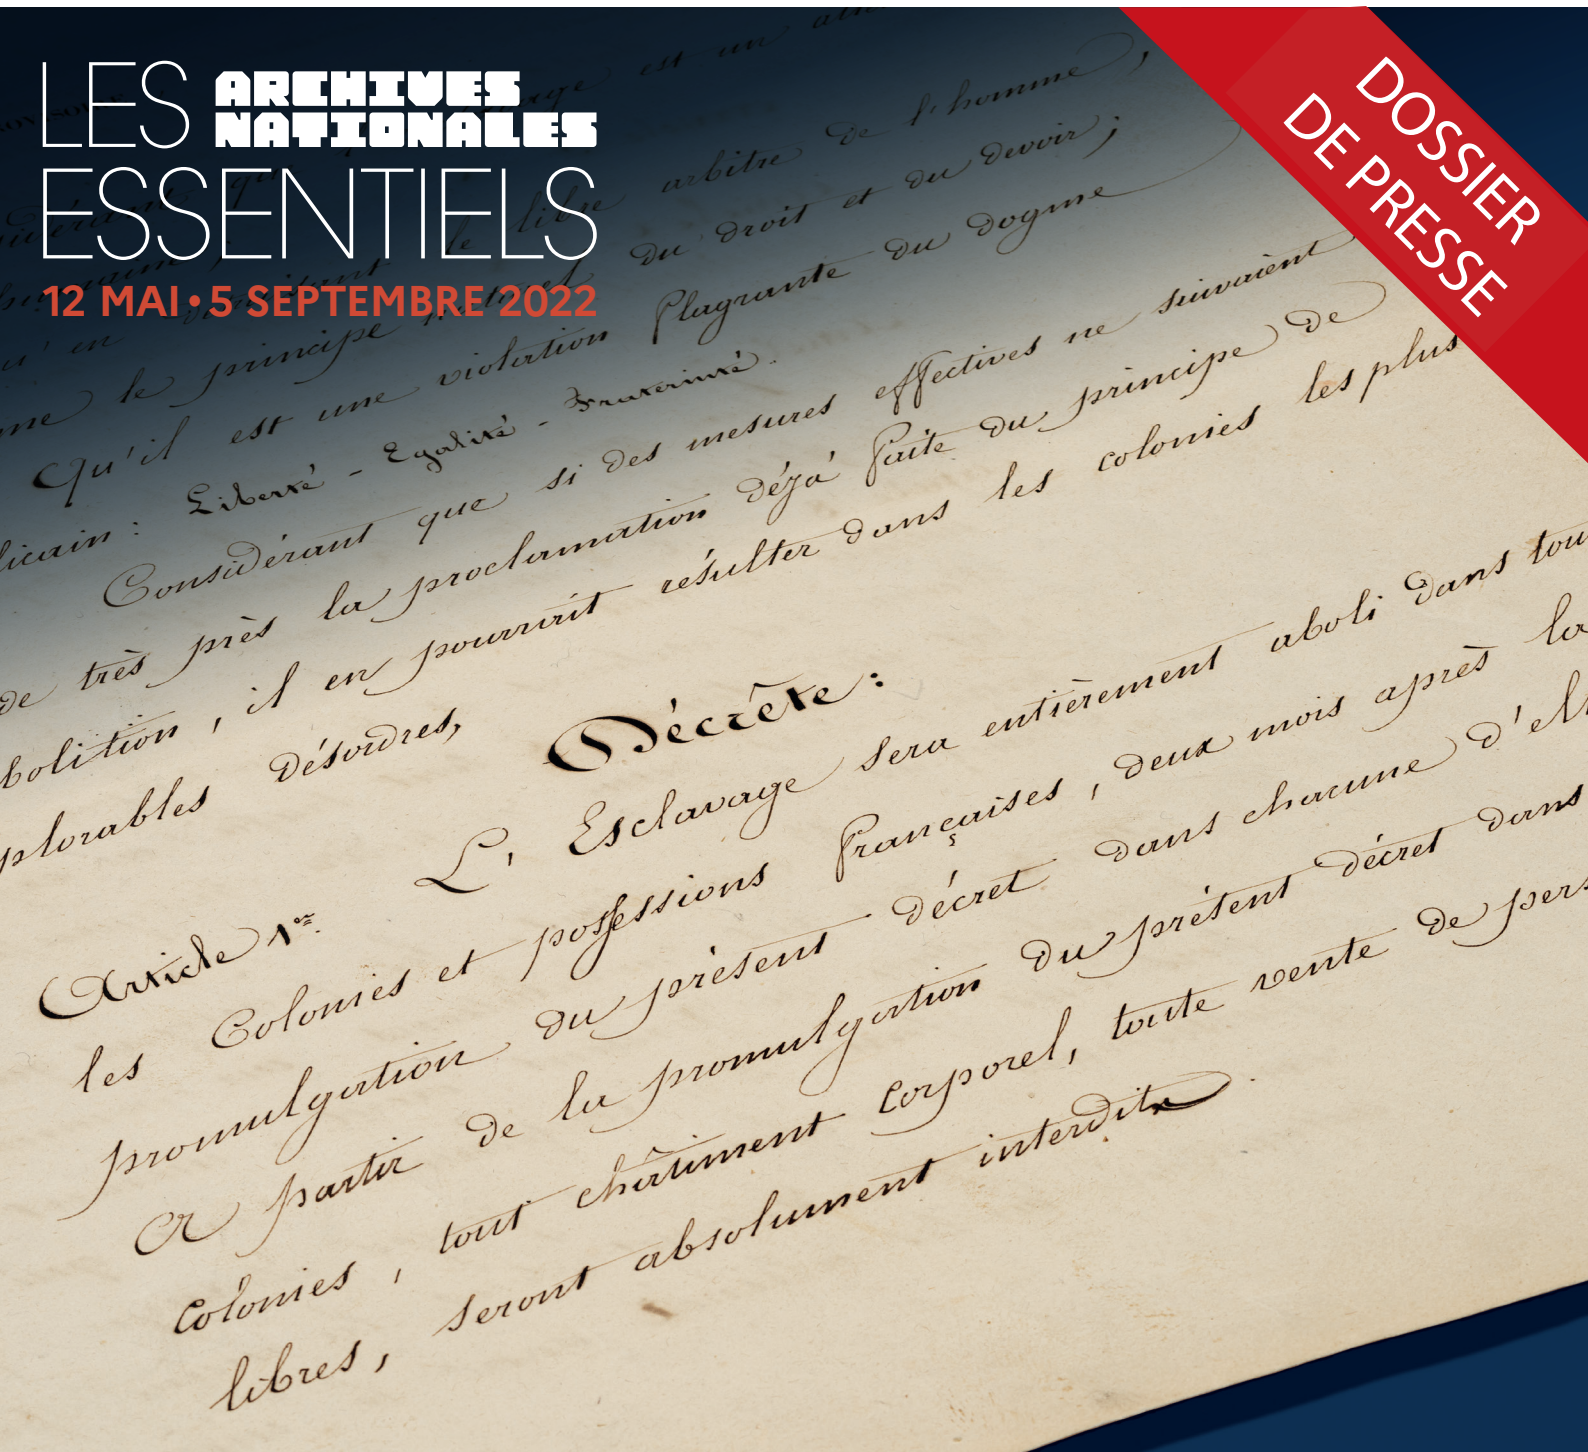 LES ARCHIVES NATIONALES
ESSENTIELS
12 MAI • 5 SEPTEMBRE 2022
DOSSIER
DE PRESSE
est un
arbitre de l'homme,
le libre
du droit et du devoir;
Qu'il est une violation flagrante du dogme
licain : Liberté - Egalité - Fraternité.
Considérant que si des mesures effectives ne suivaient
de très près la proclamation déjà faite du principe de
bolition, il en pourrait résulter dans les colonies les plus
plorables désordres,
Décrète:
Article 1er.
L'Esclavage sera entièrement aboli dans tou
les Colonies et possessions françaises, deux mois après la
promulgation du présent décret dans chacune d'el
A partir de la promulgation du présent décret dans
colonies, tout châtiment corporel, toute vente de pers
libres, seront absolument interdits.